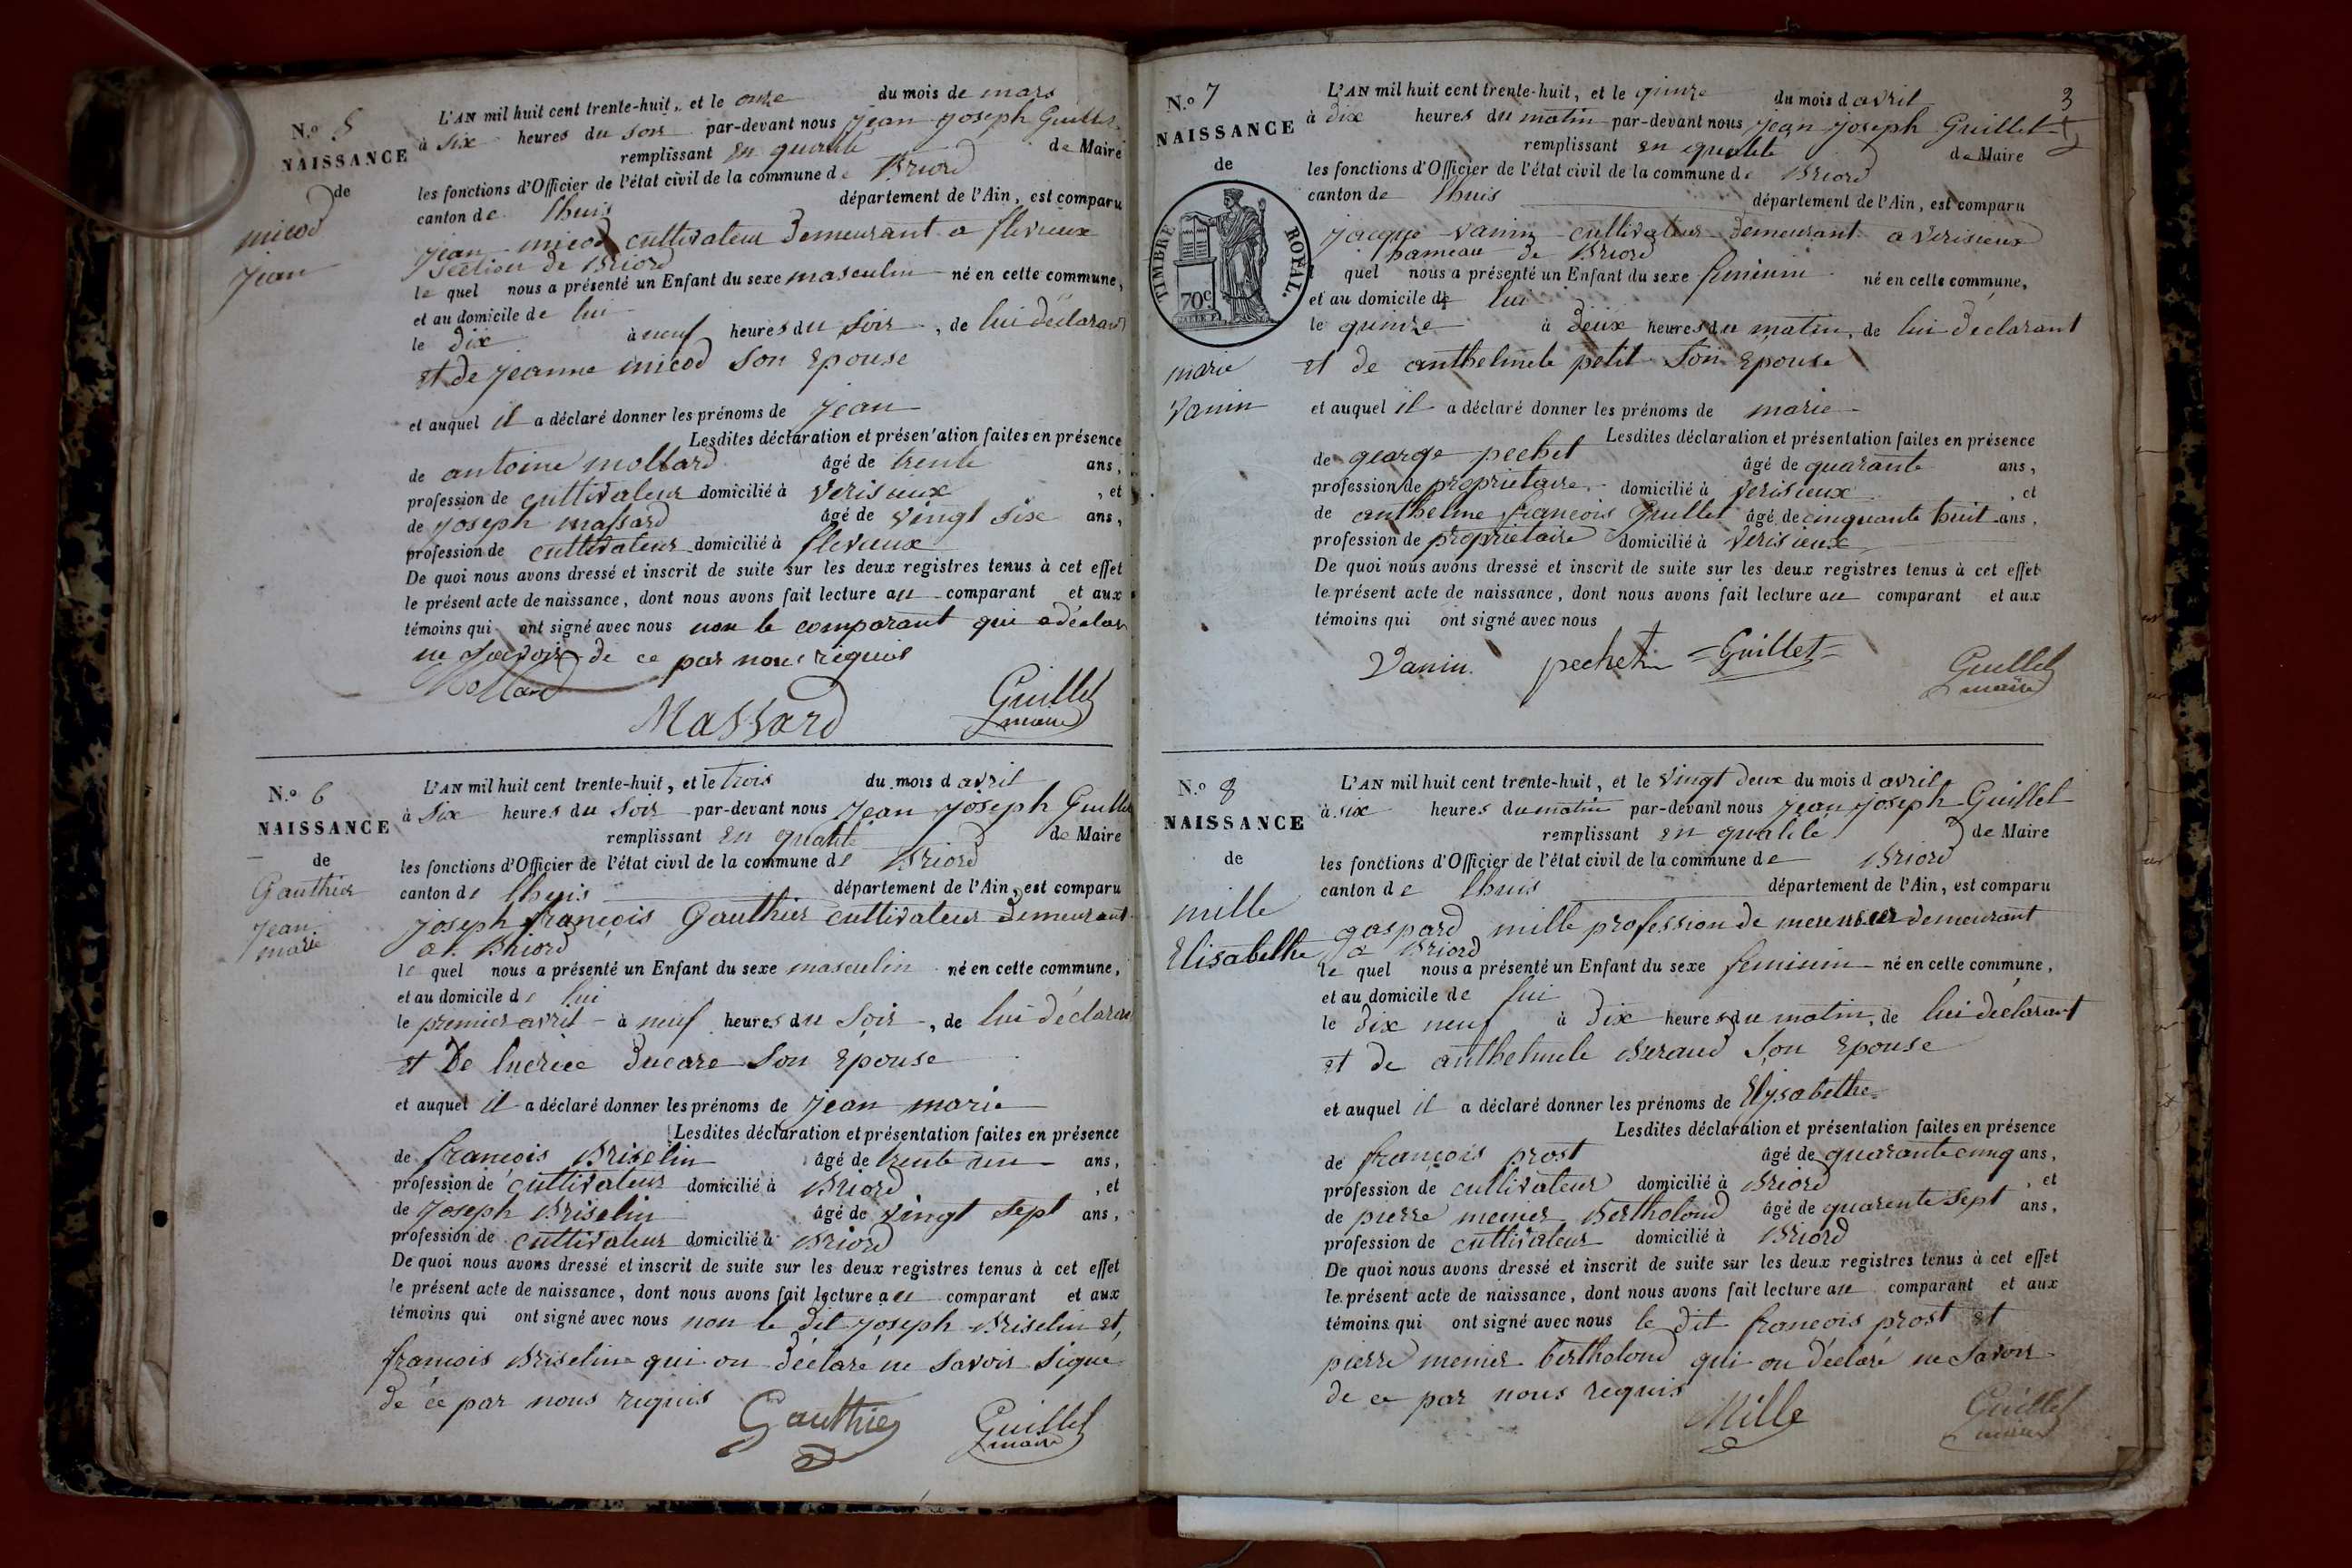 N.o 5
NAISSANCE
de
micod
jean
L'AN mil huit cent trente-huit, et le onze du mois de mars
à six heures du soir par-devant nous jean joseph Guillet
remplissant en qualité de Maire
les fonctions d'Officier de l'état civil de la commune de Briord
canton de lhuis département de l'Ain, est comparu
jean micod cultivateur demeurant a flevieux
section de Briord
le quel nous a présenté un Enfant du sexe masculin né en cette commune,
et au domicile de lui
le dix à neuf heures du soir, de lui déclarant
et de jeanne micod son epouse
et auquel il a déclaré donner les prénoms de jean
Lesdites déclaration et présen'ation faites en présence
de antoine mollard âgé de trente ans,
profession de cultivateur domicilié à verisieux, et
de joseph massard âgé de vingt six ans,
profession de cultivateur domicilié à flevieux
De quoi nous avons dressé et inscrit de suite sur les deux registres tenus à cet effet
le présent acte de naissance, dont nous avons fait lecture au comparant et aux
témoins qui ont signé avec nous non le comparant qui a déclar
ne savoir de ce par nous requis
Mollard
Massard
Guillet
maire
N.o 6
NAISSANCE
de
Gauthier
jean
marie
L'AN mil huit cent trente-huit, et le trois du mois d avril
à six heures du soir par-devant nous jean joseph Guillet
remplissant en qualité de Maire
les fonctions d'Officier de l'état civil de la commune de Briord
canton de lhuis département de l'Ain, est comparu
joseph françois Gauthier cultivateur demeurant
a Briord
le quel nous a présenté un Enfant du sexe masculin né en cette commune,
et au domicile de lui
le premier avril à neuf heures du soir, de lui déclarant
et De lucrece ducare son epouse
et auquel il a déclaré donner les prénoms de jean marie
Lesdites déclaration et présentation faites en présence
de françois Briselin âgé de trente un ans,
profession de cultivateur domicilié à Briord, et
de joseph Briselin âgé de vingt sept ans,
profession de cultivateur domicilié à Briord
De quoi nous avons dressé et inscrit de suite sur les deux registres tenus à cet effet
le présent acte de naissance, dont nous avons fait lecture au comparant et aux
témoins qui ont signé avec nous non le dit joseph Briselin et
francois Briselin qui on déclaré ne savoir signe
de ce par nous requis
Gauthier
Guillet
maire
3
N.o 7
NAISSANCE
de
TIMBRE ROYAL.
70c
marie
Vanin
L'AN mil huit cent trente-huit, et le quinze du mois d avril
à dix heures du matin par-devant nous jean joseph Guillet
remplissant en qualité de Maire
les fonctions d'Officier de l'état civil de la commune de Briord
canton de lhuis département de l'Ain, est comparu
jacque vanin cultivateur demeurant a verisieux
hameau de Briord
quel nous a présenté un Enfant du sexe feminin né en cette commune,
et au domicile de lui
le quinze à deux heures du matin, de lui déclarant
et de anthelmete petit son epouse
et auquel il a déclaré donner les prénoms de marie
Lesdites déclaration et présentation faites en présence
de george pechet âgé de quarante ans,
profession de proprietaire domicilié à verisieux, et
de anthelme francois Guillet âgé de cinquante huit ans,
profession de proprietaire domicilié à verisieux
De quoi nous avons dressé et inscrit de suite sur les deux registres tenus à cet effet
le présent acte de naissance, dont nous avons fait lecture au comparant et aux
témoins qui ont signé avec nous
Vanin. pechet Guillet
Guillet
maire
N.o 8
NAISSANCE
de
mille
Elisabethe
L'AN mil huit cent trente-huit, et le vingt deux du mois d avril
à six heures du matin par-devant nous jean joseph Guillet
remplissant en qualité de Maire
les fonctions d'Officier de l'état civil de la commune de Briord
canton de lhuis département de l'Ain, est comparu
gaspard mille profession de demeurant
a Briord
le quel nous a présenté un Enfant du sexe feminin né en cette commune,
et au domicile de lui
le dix neuf à dix heures du matin, de lui déclarant
et de anthelmete Beraud son epouse
et auquel il a déclaré donner les prénoms de Elysabethe
Lesdites déclaration et présentation faites en présence
de françois prost âgé de quarante cinq ans,
profession de cultivateur domicilié à Briord, et
de pierre menier Bertholond âgé de quarente sept ans,
profession de cultivateur domicilié à Briord
De quoi nous avons dressé et inscrit de suite sur les deux registres tenus à cet effet
le présent acte de naissance, dont nous avons fait lecture au comparant et aux
témoins qui ont signé avec nous le dit francois prost et
pierre menier bertholond qui on déclaré ne savoir
de ce par nous requis
Mille
Guillet
maire